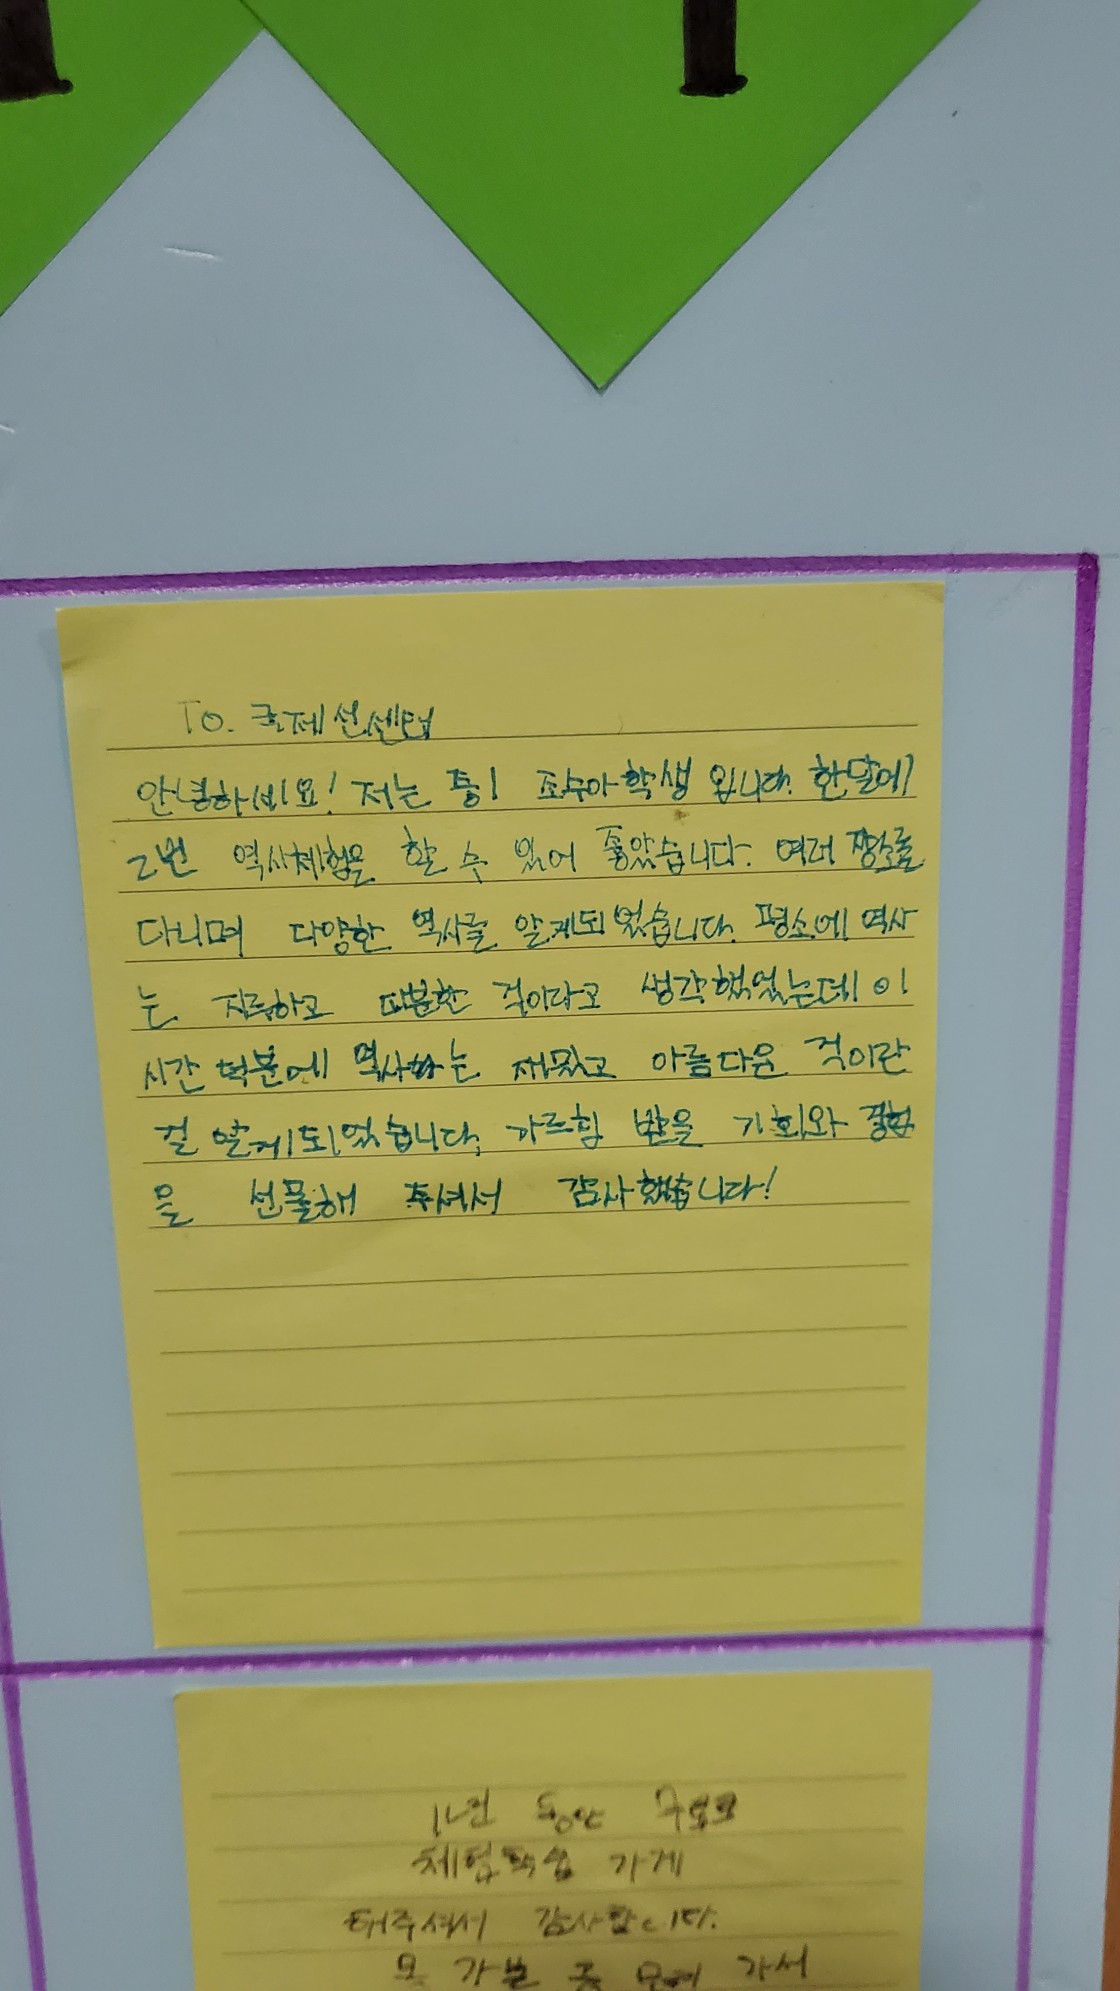 To. 국제선센텁
안녕하세요! 저는 중1 조수아학생 입니다. 한달에
2번 역사체험을 할 수 있어 좋았습니다. 여러 장소를
다니며 다양한 역사를 알게되었습니다. 평소에 역사
는 지루하고 따분한 것이라고 생각했었는데 이
시간 덕분에 역사는 재밌고 아름다운 것이란
걸 알게되었습니다. 가르침 받을 기회와 경험
을 선물해 주셔서 감사했습니다!
1년 동안 무료로
체험학습 가게
해주셔서 감사합니다.
못 가본 곳 가서